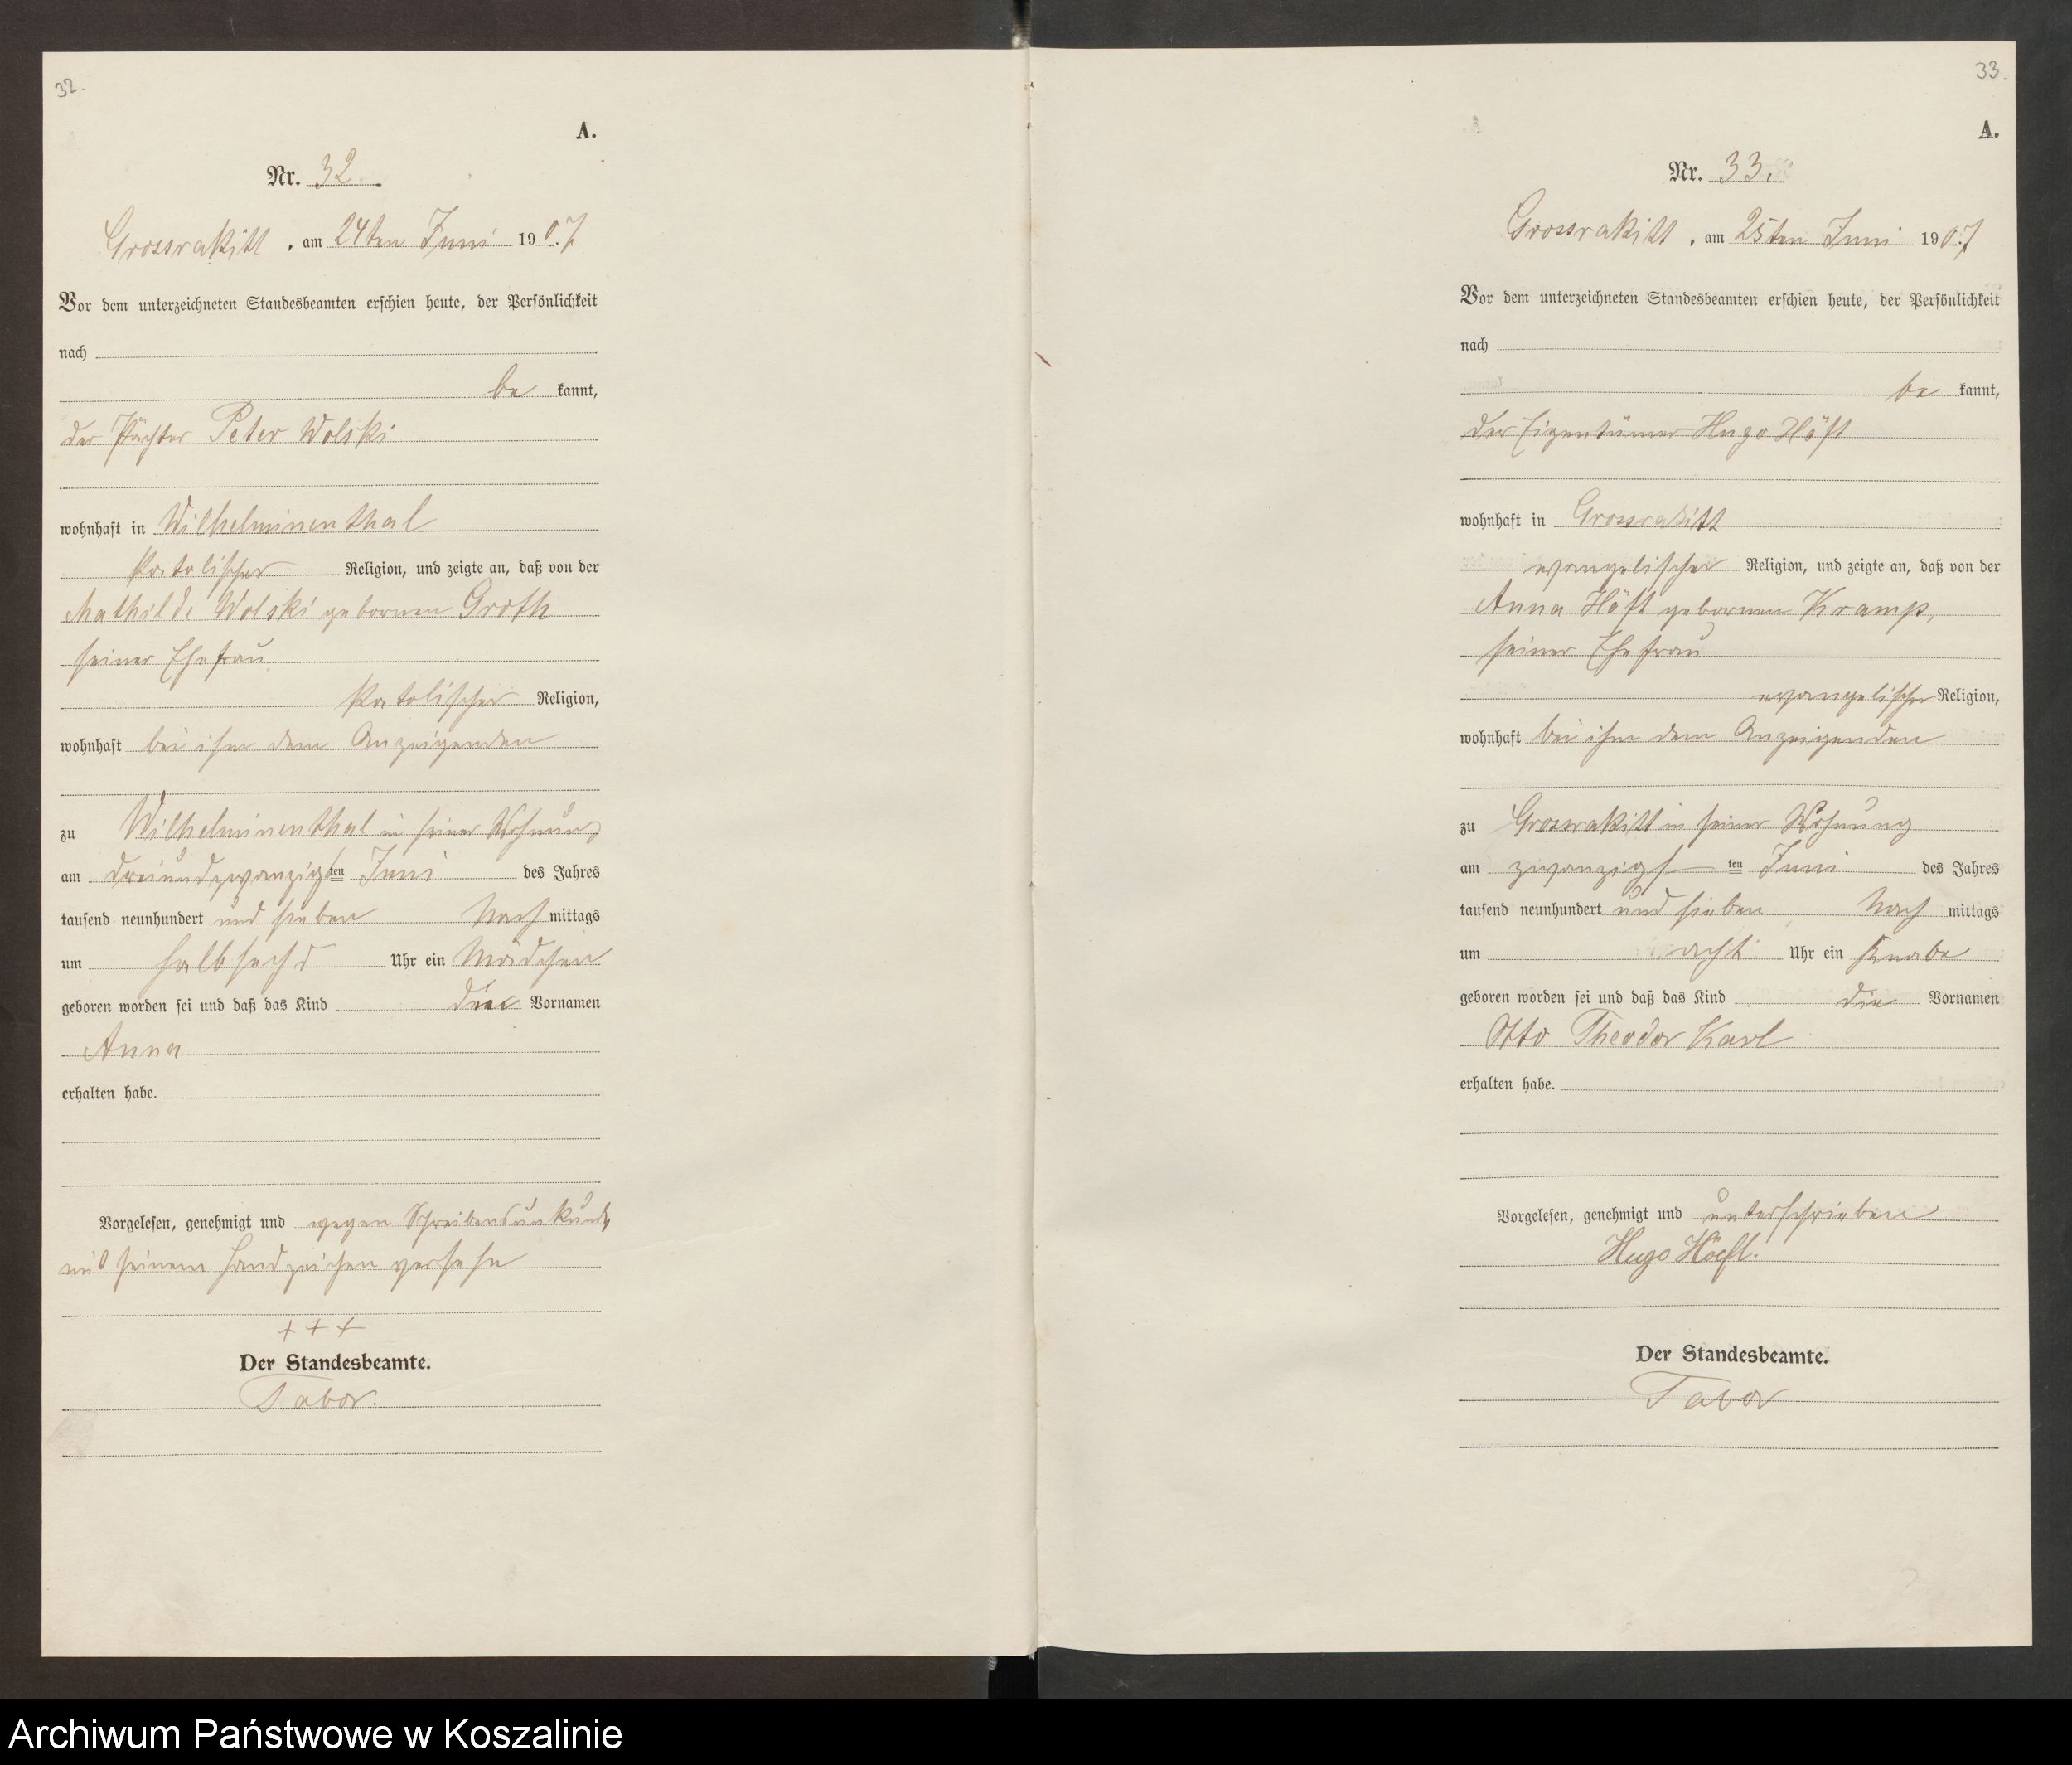 32.
A.
Nr. 32.
Grossrakitt, am 24ten Juni 1907
Vor dem unterzeichneten Standesbeamten erschien heute, der Persönlichkeit
nach
be kannt,
der Pächter Peter Wolski
wohnhaft in Wilhelminenthal
katolischer Religion, und zeigte an, daß von der
Mathilde Wolski gebornen Groth
seiner Ehefrau
katolischer Religion,
wohnhaft bei ihm dem Anzeigenden
zu Wilhelminenthal in seiner Wohnung
am dreiundzwanzigsten Juni des Jahres
tausend neunhundert und sieben Nach mittags
um halb sechs Uhr ein Mädchen
geboren worden sei und daß das Kind die Vornamen
Anna
erhalten habe.
Vorgelesen, genehmigt und wegen Schreibensunkunde
mit seinem Handzeichen versehn
+ + +
Der Standesbeamte.
Tabor.
33.
A.
Nr. 33.
Grossrakitt, am 25ten Juni 1907
Vor dem unterzeichneten Standesbeamten erschien heute, der Persönlichkeit
nach
be kannt,
der Eigentümer Hugo Höft
wohnhaft in Grossrakitt
evangelischer Religion, und zeigte an, daß von der
Anna Höft gebornen Kramp,
seiner Ehefrau
evangelischer Religion,
wohnhaft bei ihm dem Anzeigenden
zu Grossrakitt in seiner Wohnung
am zwanzigsten Juni des Jahres
tausend neunhundert und sieben Nach mittags
um acht Uhr ein Knabe
geboren worden sei und daß das Kind die Vornamen
Otto Theodor Karl
erhalten habe.
Vorgelesen, genehmigt und unterschrieben
Hugo Höeft.
Der Standesbeamte.
Tabor
Archiwum Państwowe w Koszalinie